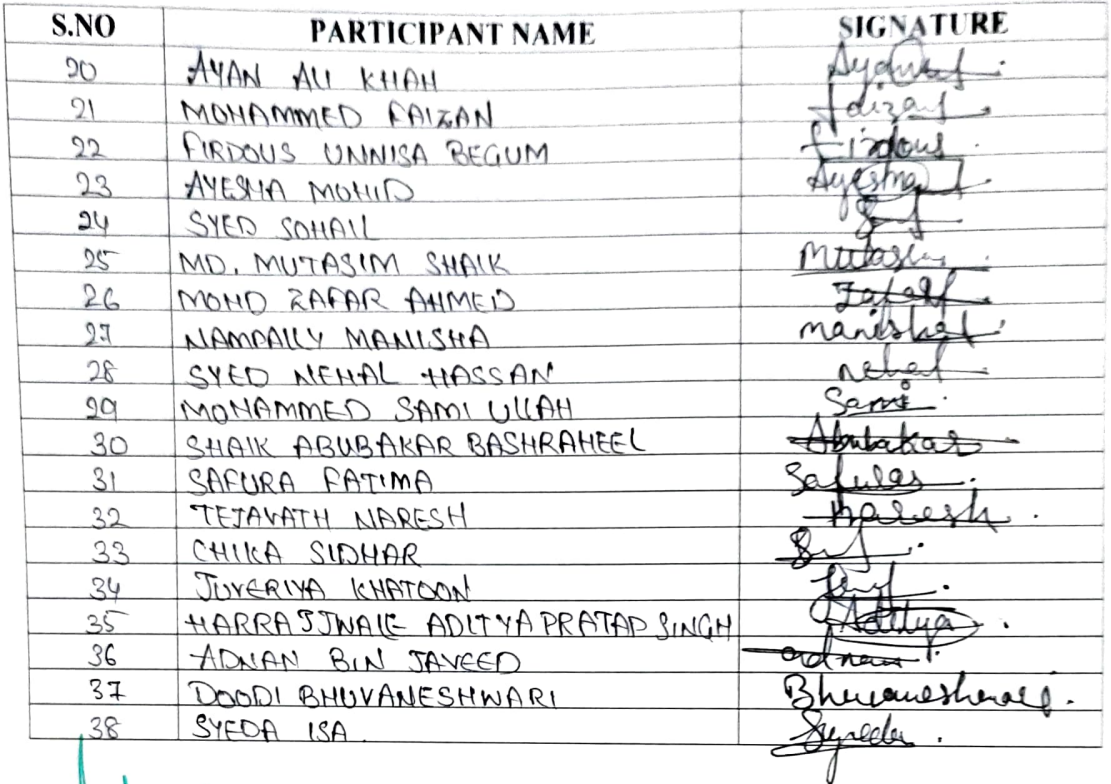 S.NO PARTICIPANT NAME SIGNATURE
20 AYAN ALI KHAN
21 MOHAMMED FAIZAN Faizan
22 FIRDOUS UNNISA BEGUM Firdous
23 AYESHA MOHID Ayesha
24 SYED SOHAIL
25 MD. MUTASIM SHAIK Mutasim
26 MOHD ZAFAR AHMED Zafar
27 NAMPALLY MANISHA manisha
28 SYED NEHAL HASSAN nehal
29 MOHAMMED SAMI ULLAH Sami
30 SHAIK ABUBAKAR BASHRAHEEL Abubakar
31 SAFURA FATIMA
32 TEJAVATH NARESH Naresh
33 CHIKA SIDHAR
34 JUVERIYA KHATOON
35 HARRAJJWALE ADITYA PRATAP SINGH Aditya
36 ADNAN BIN JAVEED adnan
37 DOODI BHUVANESHWARI Bhuvaneshwari
38 SYEDA ISA Syeda